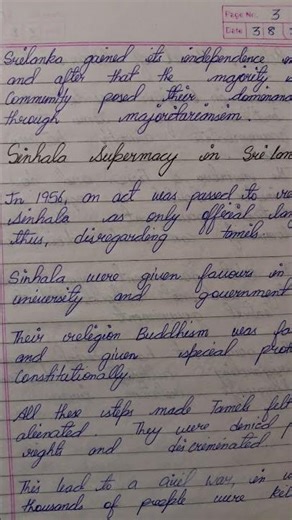 Page No. 3
Date 3 8
Srilanka gained its independence
and after that the majority
Community posed their
through majoritarianism.
Sinhala Supermacy in Sri
In 1956, an act was passed to
Sinhala as only official
thus, disregarding tamils.
Sinhala were given favours in
university and government
Their religion Buddhism was
and given special
Constitutionally.
All these steps made Tamils felt
alienated. They were denied
rights and discreminated.
This lead to a civil war, in
thousands of people were